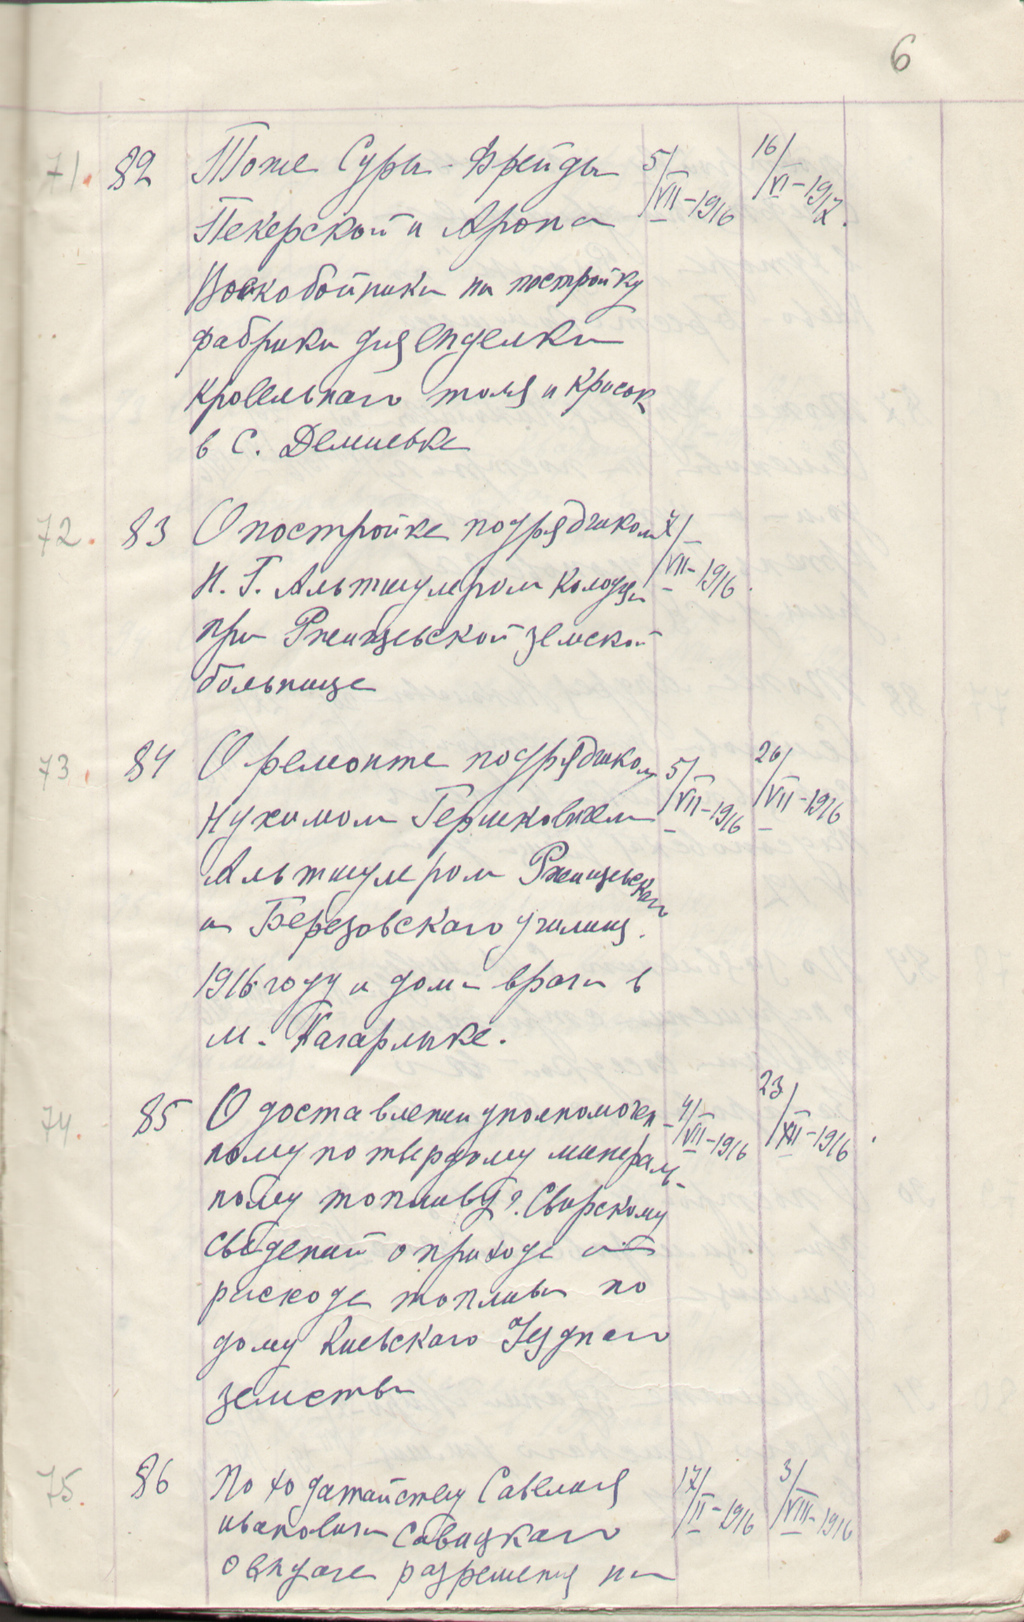 6
71. 82 Тоже Суры-Фрейды 5/VII-1916 16/VI-1917.
Пекерской и Арона
Воскобойника на постройку
фабрики для выделки
кровельнаго толя и красок
в С. Демиевке
72. 83 О постройке подрядчиком 7/VII-1916.
Н. Г. Альтшулером колодца
при Ржищевской земской
больнице
73. 84 О ремонте подрядчиком 5/VII-1916 26/VII-1916
Нухимом Гершковичем
Альтшулером Ржищевскаго
и Березовскаго училищ.
1916 году и дома врача в
м. Кагарлыке.
74. 85 О доставлении уполномочен- 4/VII-1916 23/XII-1916.
ному по твердому минераль-
ному топливу г. Свирскому
сведений о приходе и
расходе топлива по
дому Киевскаго Уезднаго
земства
75. 86 По ходатайству Савелия 17/II-1916 3/VIII-1916
Ивановича Савицкаго
о выдаче разрешения на